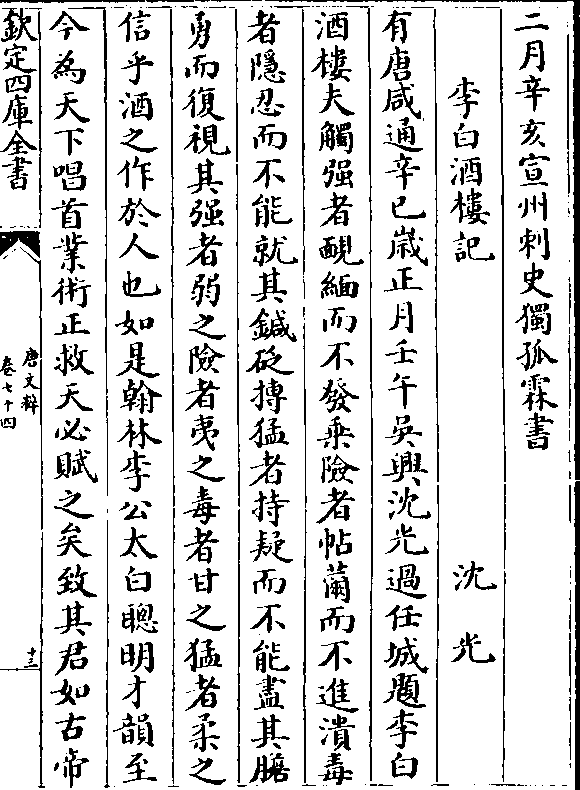 二月辛亥宣州刺史獨孤霖書
李白酒樓記 沈光
有唐咸通辛巳嵗正月壬午吳興沈光過任城題李白
酒樓夫觸强者靦緬而不發乗險者帖薾而不進潰毒
者隱忍而不能就其鍼砭搏猛者持疑而不能盡其膽
勇而復視其强者弱之險者夷之毒者甘之猛者柔之
信乎酒之作於人也如是翰林李公太白聰明才韻至
今為天下唱首業術正救天必賦之矣致其君如古帝
欽定四庫全書
唐文粹
卷七十四
十三